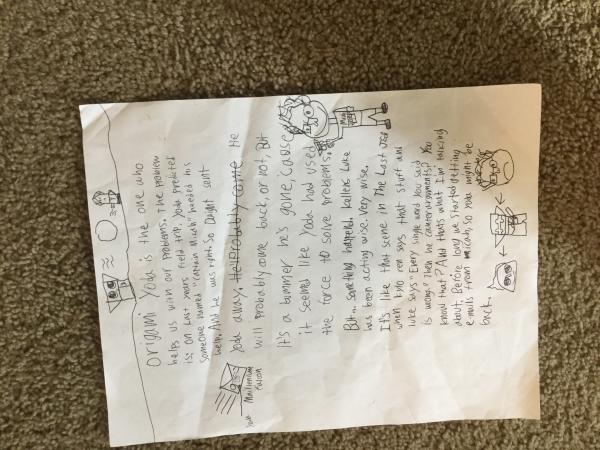 origami Yoda is the one who
helps us with our problems. The problem
is: on last years field trip, Yoda predicted
someone named "Captain Mucks" needed his
help. And he was right. So Dwight sent
Yoda away. He'll probably come He
will probably come back, or not, But
it's a bummer he's gone, cause
it seemed like Yoda had used
the force to solve problems.
But... something happend. Kellens Luke
has been acting wise. very wise.
It's like that scene in The Last Jedi
when kylo ren says that stuff and
luke says "Every single word you said
is wrong." Then he counterarguments? You
know that? And thats what I'm talking
about. Before long we started getting
e-mails from micah, so yoda might be
back.
Yoda
Falcon